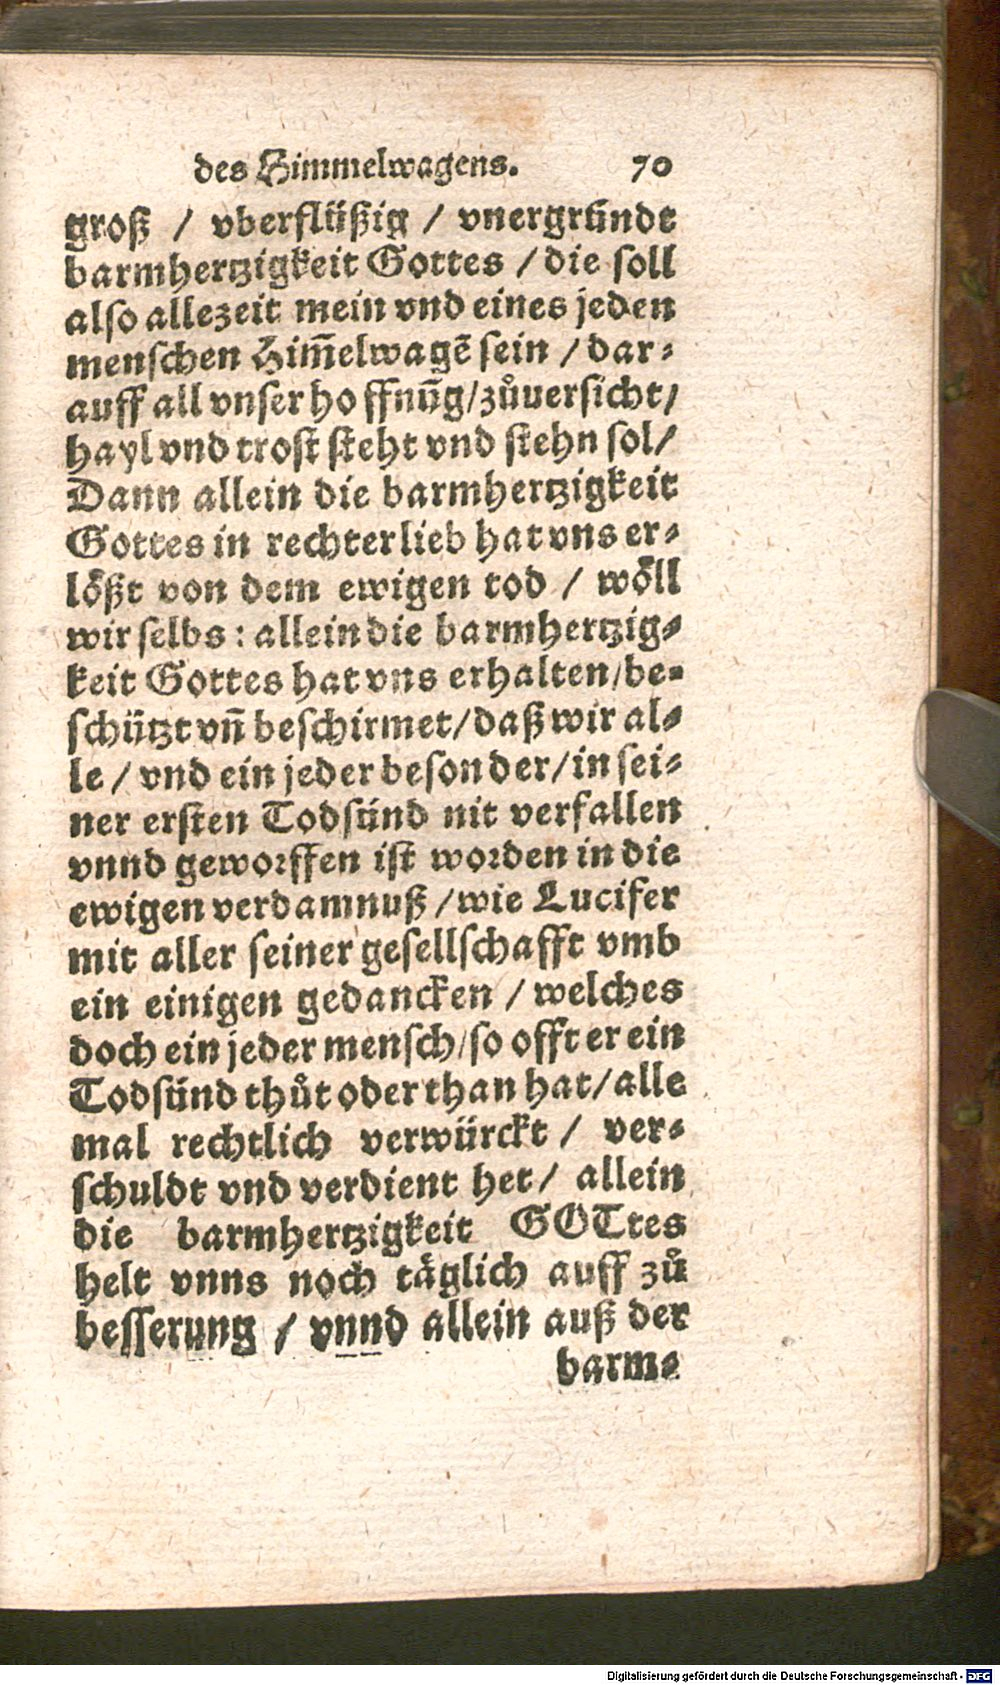 des Himmelwagens. 70
groß / vberflüßig / vnergründt
barmhertzigkeit Gottes / die soll
also allezeit mein vnd eines jeden
menschen Him̃elwagẽ sein / dar-
auff all vnser hoffnũg/zůuersicht/
hayl vnd trost steht vnd stehn sol/
Dann allein die barmhertzigkeit
Gottes in rechter lieb hat vns er-
lößt von dem ewigen tod / wöll
wir selbs : allein die barmhertzig-
keit Gottes hat vns erhalten/be-
schützt vñ beschirmet/daß wir al-
le / vnd ein jeder besonder/in sei-
ner ersten Todsünd nit verfallen
vnnd geworffen ist worden in die
ewigen verdamnuß /wie Lucifer
mit aller seiner gesellschafft vmb
ein einigen gedancken / welches
doch ein jeder mensch/so offt er ein
Todsünd thůt oder than hat/alle
mal rechtlich verwürckt / ver-
schuldt vnd verdient het/ allein
die barmhertzigkeit GOTtes
helt vnns noch täglich auff zů
besserung / vnnd allein auß der
barm-
Digitalisierung gefördert durch die Deutsche Forschungsgemeinschaft - DFG